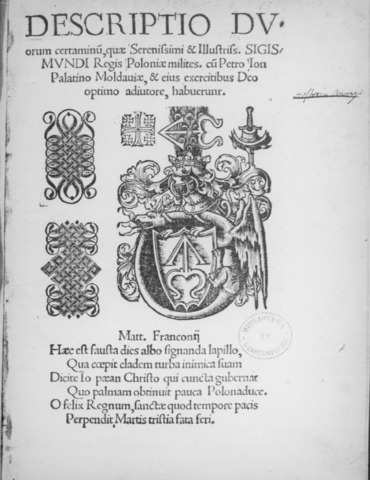 DESCRIPTIO DV-
orum certaminũ, quæ Serenissimi & Illustriss. SIGIS/
MVNDI Regis Poloniæ milites. cũ Petro Ion
Palatino Moldauiæ, & eius exercitibus Deo
optimo adiutore, habuerunt.
Matt. Franconij
Hæc est fausta dies albo signanda lapillo,
Qua cœpit cladem turba inimica suam
Dicite Io pæan Christo qui cuncta gubernat
Quo palmam obtinuit pauca Polona duce.
O felix Regnum, sanctæ quod tempore pacis
Perpendit, Martis tristia fata feri.